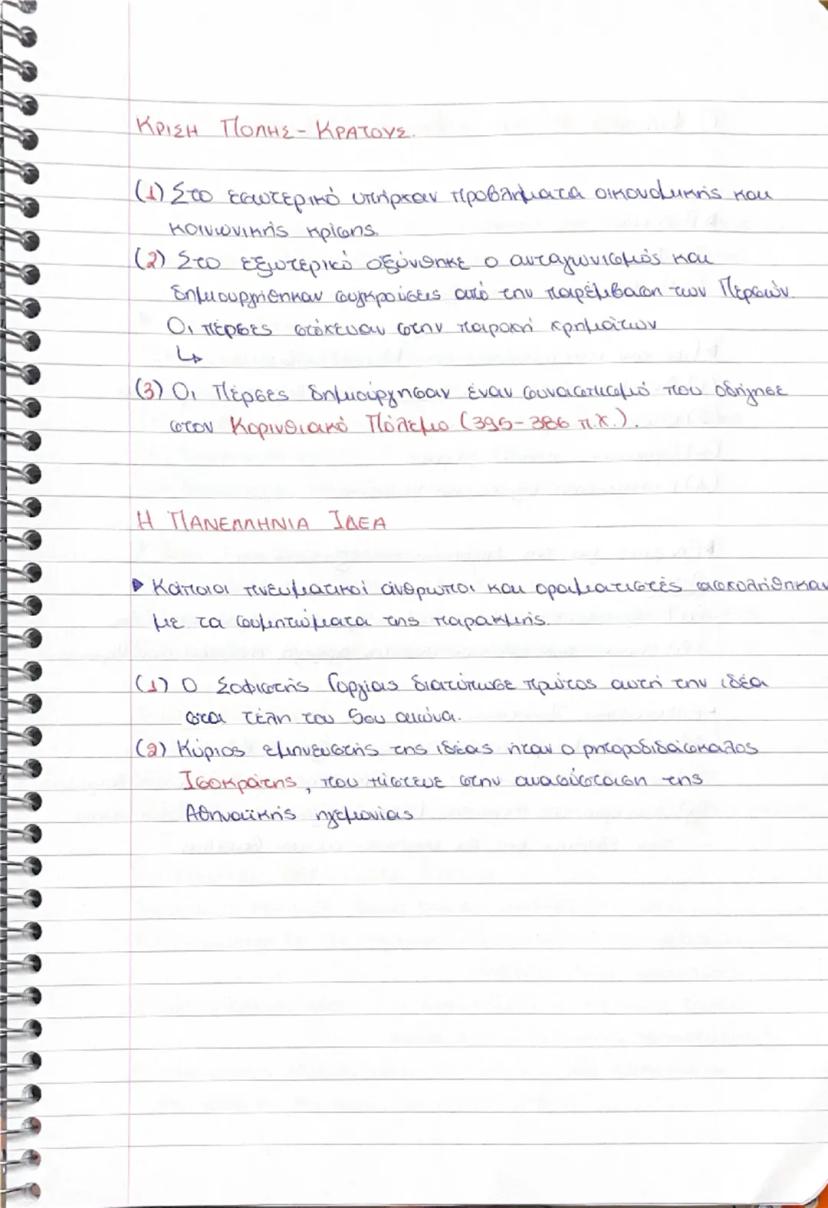 ΚΡΙΣΗ ΠΟΛΗΣ - ΚΡΑΤΟΥΣ.
(1) Στο εσωτερικό υπήρχαν προβλήματα οικονομικής και
κοινωνικής κρίσης.
(2) Στο εξωτερικό οξύνθηκε ο ανταγωνισμός και
δημιουργήθηκαν συγκρούσεις από την παρέμβαση των Περσών.
Οι πέρσες στόχευαν στην παροχή χρημάτων
↳
(3) Οι Πέρσες δημιούργησαν έναν συνασπισμό που οδήγησε
στον Κορινθιακό Πόλεμο (395-386 π.Χ.).
Η ΠΑΝΕΛΛΗΝΙΑ ΙΔΕΑ
▶ Κάποιοι πνευματικοί άνθρωποι και οραματιστές ασχολήθηκαν
με τα συμπτώματα της παρακμής.
(1) Ο Σοφιστής Γοργίας διατύπωσε πρώτος αυτή την ιδέα
στα τέλη του 5ου αιώνα.
(2) Κύριος εμπνευστής της ιδέας ήταν ο ρητοροδιδάσκαλος
Ισοκράτης, που πίστευε στην ανασύσταση της
Αθηναϊκής ηγεμονίας